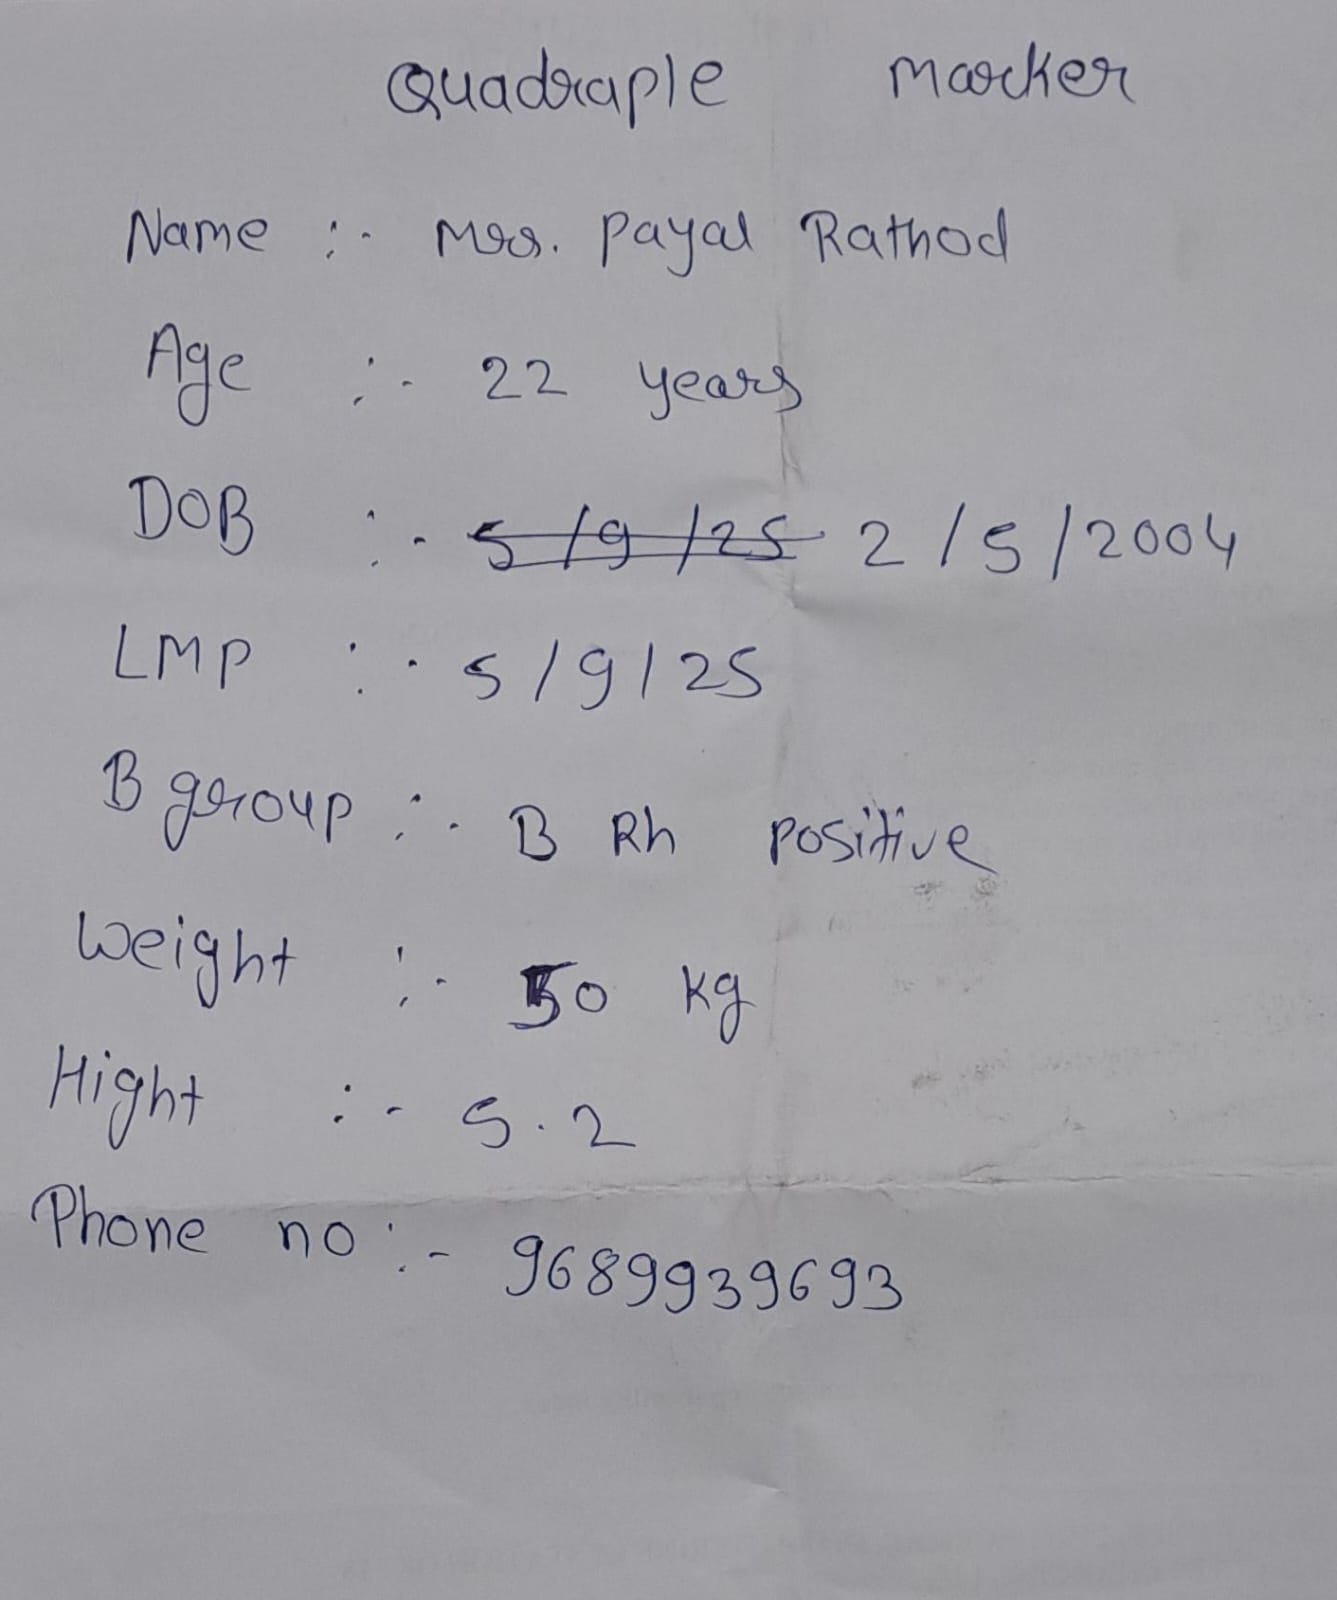 Quadraple Marker
Name :- Mrs. Payal Rathod
Age :- 22 years
DOB :- 5/9/25 2/5/2004
LMP :- 5/9/25
B group :- B Rh positive
Weight :- 50 kg
Hight :- 5.2
Phone no :- 9689939693